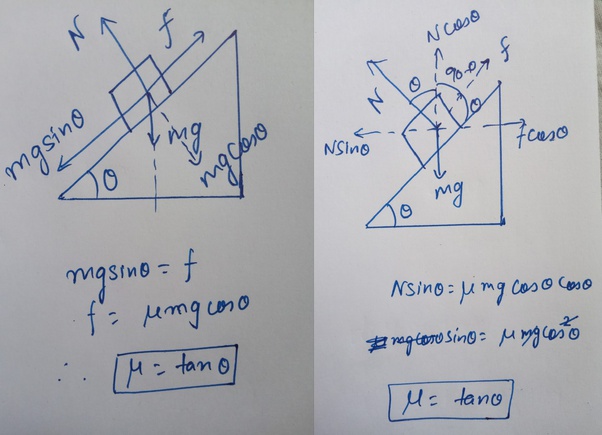 N
f
mg sinθ
mg
mg cosθ
θ
mg sinθ = f
f = μ mg cosθ
∴ μ = tanθ
N cosθ
f
θ
90-θ
N
θ
N sinθ
f cosθ
mg
θ
N sinθ = μ mg cosθ cosθ
mg cosθ sinθ = μ mg cos²θ
μ = tanθ